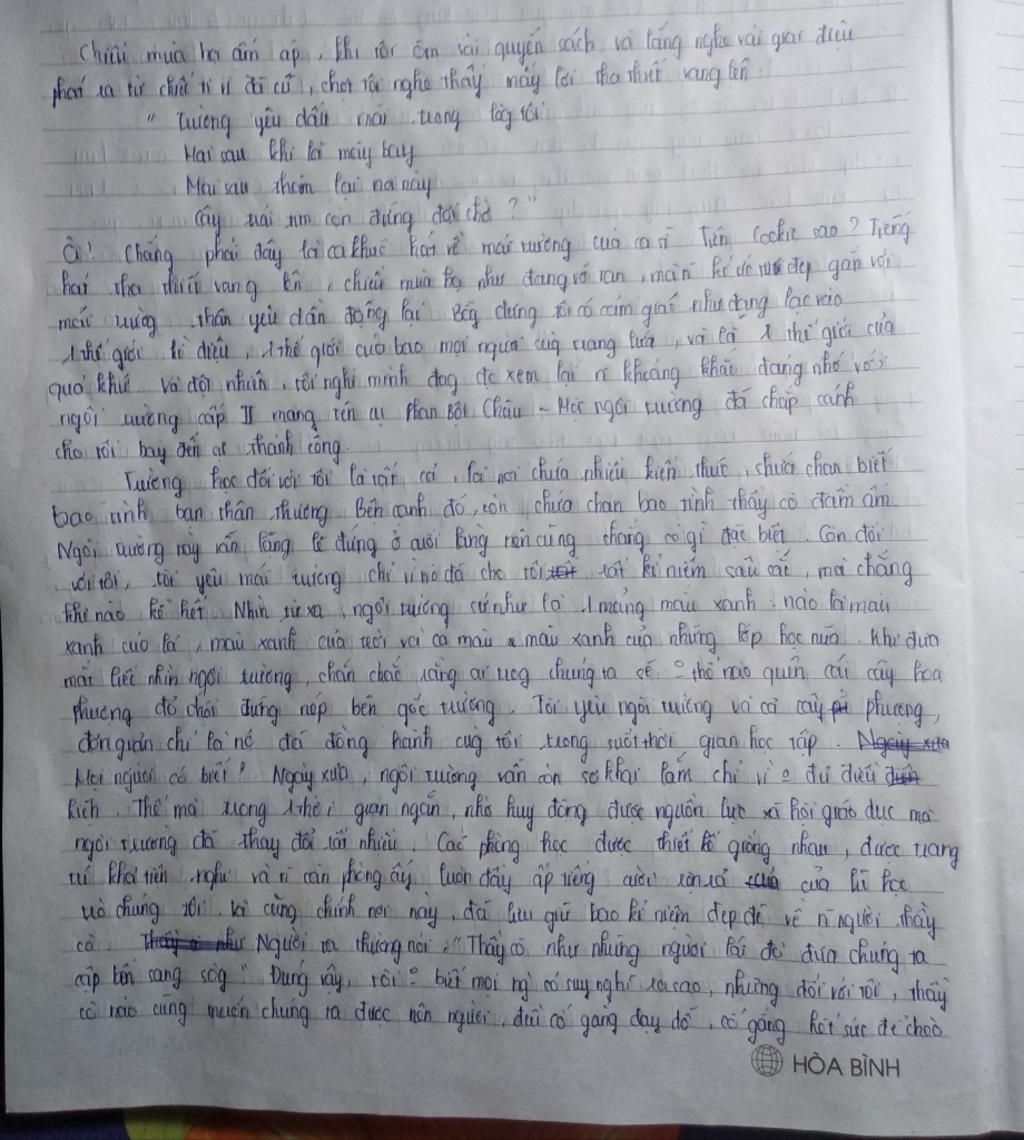 Chiều mùa hạ ấm áp, khi tôi ôm vài quyển sách và lắng nghe vài giai điệu
phát ra từ chiếc ti vi đã cũ, chợt tôi nghe thấy mấy lời tha thiết vang lên.
" Trường yêu dấu mãi trong lòg tôi
Mai sau khi lá mây bay
Mai sau thăm lại nơi này
Cây trái còn đứng đợi chờ ? "
Ồ! Chẳng phải đây là ca khúc hát về mái trường của ca sĩ Tiên Cookie sao? Tiếng
hát tha thiết vang lên, chiều mùa hạ như đang vỡ tan, màn kí ức đẹp gắn với
mái trường thân yêu dần đọng lại. Bỗg dưng tôi có cảm giác như đang lạc vào
1 thế giới kì diệu, 1 thế giới của bao mọi người cùg trang lứa, và là 1 thế giới của
quá khứ. Và đột nhiên, tôi nghĩ mình đag đc xem lại n~ khoảng khắc đáng nhớ với
ngôi trường cấp II mang tên cụ Phan Bội Châu ~ Một ngôi trường đã chắp cánh
cho tôi bay đến sự thành công.
Trường học đối với tôi là tất cả, là nơi chứa nhiều kiến thức, chứa chan biết
bao tình bạn thân thương. Bên cạnh đó, còn chứa chan bao tình thầy cô đầm ấm.
Ngôi trường này vẫn lặng lẽ đứng ở cuối làng nên cũng chẳng có gì đặc biệt. Còn đối
với tôi, tôi yêu mái trường chỉ vì nó đã cho tôi rất kỉ niệm sâu sắc, mà chẳng
khi nào kể hết. Nhìn từ xa, ngôi trường cứ như là 1 mảng màu xanh : nào là màu
xanh của lá, màu xanh của trời và cả màu xanh của những lớp học nữa. Khi đưa
mắt liếc nhìn ngôi trường, chắn chắc rằng ai trog chúng ta sẽ º thể nào quên cái cây hoa
phượng đỏ chói đứng nép bên góc trường. Tôi yêu ngôi trường và cả cây phượng,
đơn giản chỉ là nó đã đồng hành cùg tôi trong suốt thời gian học tập. Ngày xưa
Mọi người có biết? Ngày xưa, ngôi trường vẫn còn sơ khai lắm chỉ vì º đủ điều
kiện. Thế mà trong 1 thời gian ngắn, nhờ huy động được nguồn lực xã hội giáo dục mà
ngôi trường đã thay đổi rất nhiều. Các phòng học được thiết kế giống nhau, được trang
trí khá tiện nghi và n~ căn phòng ấy luôn đầy ắp tiếng cười rộn rã của lũ học
trò chúng tôi. Và cũng chính nơi này, đã lưu giữ bao kỉ niệm đẹp đẽ về n~ người thầy
cô. Thầy như Người ta thường nói, " Thầy cô như những người lái đò đưa chúng ta
cập bến sang sôg". Đúng vậy, tôi º biết mọi ng` có suy nghĩ ra sao, nhưng đối với tôi, thầy
cô nào cũng muốn chúng ta được nên người, đều cố gắng dạy dỗ, cố gắng hết sức để cho
HÒA BÌNH